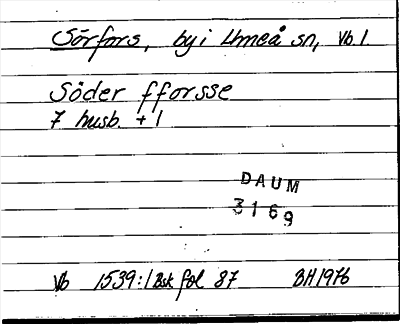 Sörfors, by i Umeå sn, Vb l.
Söder fforsse
7 husb. + 1
DAUM
3169
Vb 1539:1 Bsk fol 87 BH 1976